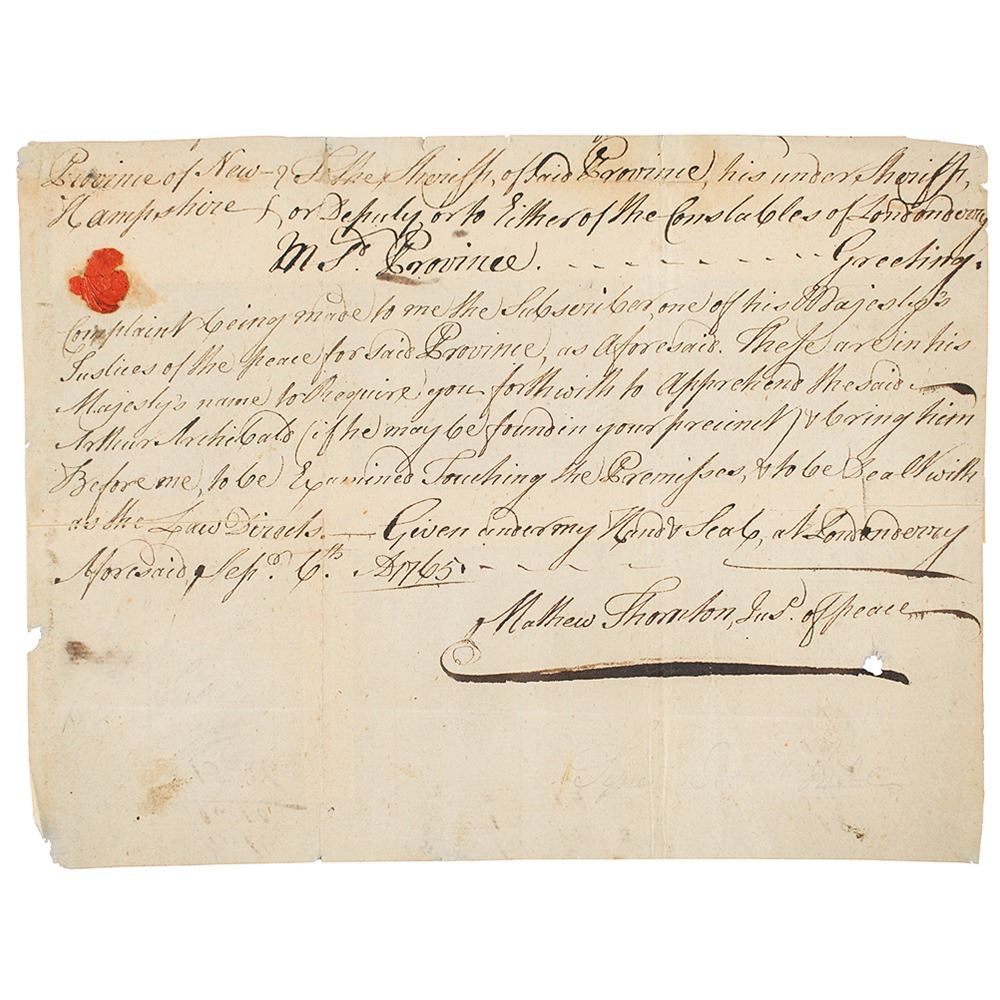 Province of New- } To the Sheriff, of said Province, his under Sheriff,
Hampshire } or Deputy or to Either of the Constables of Londonderry
in Sd. Province. - - - - - - - - - Greeting.
Complaint being made to me the Subscriber, one of his Majesty's
Justices of the peace for said Province, as Aforesaid. These are in his
Majesty's name to Require you forthwith to Apprehend the said
Arthur Archibald (if he may be found in your precinct) & bring him
Before me, to be Examined Touching the Premisses, & to be Dealt with
as the Law Directs. — Given under my Hand & Seal, at Londonderry
Aforesaid, Sepr. 6th. AD 1765. - - - -
Mathew Thornton, Jusd. of peace